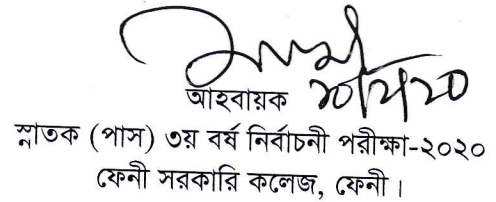 আহবায়ক
স্নাতক (পাস) ৩য় বর্ষ নির্বাচনী পরীক্ষা-২০২০
ফেনী সরকারি কলেজ, ফেনী।